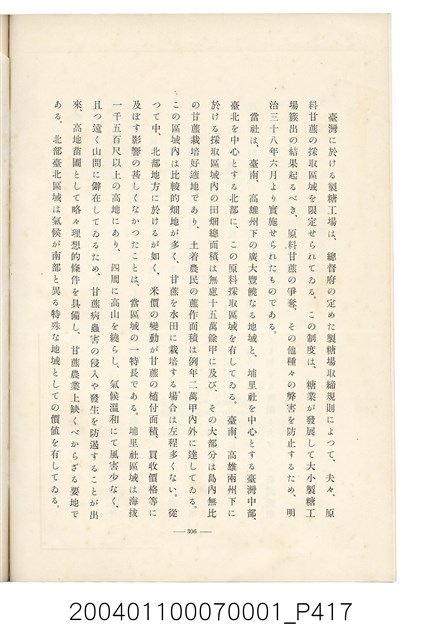 臺灣に於ける製糖工場は、總督府の定めた製糖場取締規則によつて、夫々、原
料甘蔗の採取區域を限定せられてゐる。この制度は、糖業が發展して大小製糖工
場簇出の結果起るべき、原料甘蔗の爭奪、その他種々の弊害を防止するため、明
治三十八年六月より實施せられたものである。
當社は、臺南、高雄州下の廣大豐饒なる地域と、埔里社を中心とする臺灣中部、
臺北を中心とする北部に、この原料採取區域を有してゐる。臺南、高雄兩州下に
於ける採取區域內の田畑總面積は無慮十五萬餘甲に及び、その大部分は島內無比
の甘蔗栽培好適地であり、土着農民の蔗作面積は例年二萬甲內外に達してゐる。
この區域內は比較的畑地が多く、甘蔗を水田に栽培する場合は左程多くない。從
つて中、北部地方に於けるが如く、米價の變動が甘蔗の植付面積、買收價格等に
及ぼす影響の甚しくなかつたことは、當區域の一特長である。埔里社區域は海拔
一千五百尺以上の高地にあり、四周に高山を繞らし、氣候溫和にて風害少なく、
且つ遠く山間に僻在してゐるため、甘蔗病蟲害の侵入や發生を防遏することが出
來、高地苗圃として略々理想的條件を具備し、甘蔗農業上缺くべからざる要地で
ある。北部臺北區域は氣候が南部と異る特殊な地域としての價値を有してゐる。
― 306 ―
200401100070001_P417